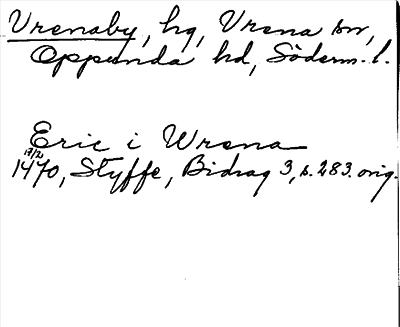 Vrenaby, hg, Vrena sn,
Oppunda hd, Söderm. l.
Eric i Wrena
17/2
1470, Styffe, Bidrag 3, s. 283. orig.